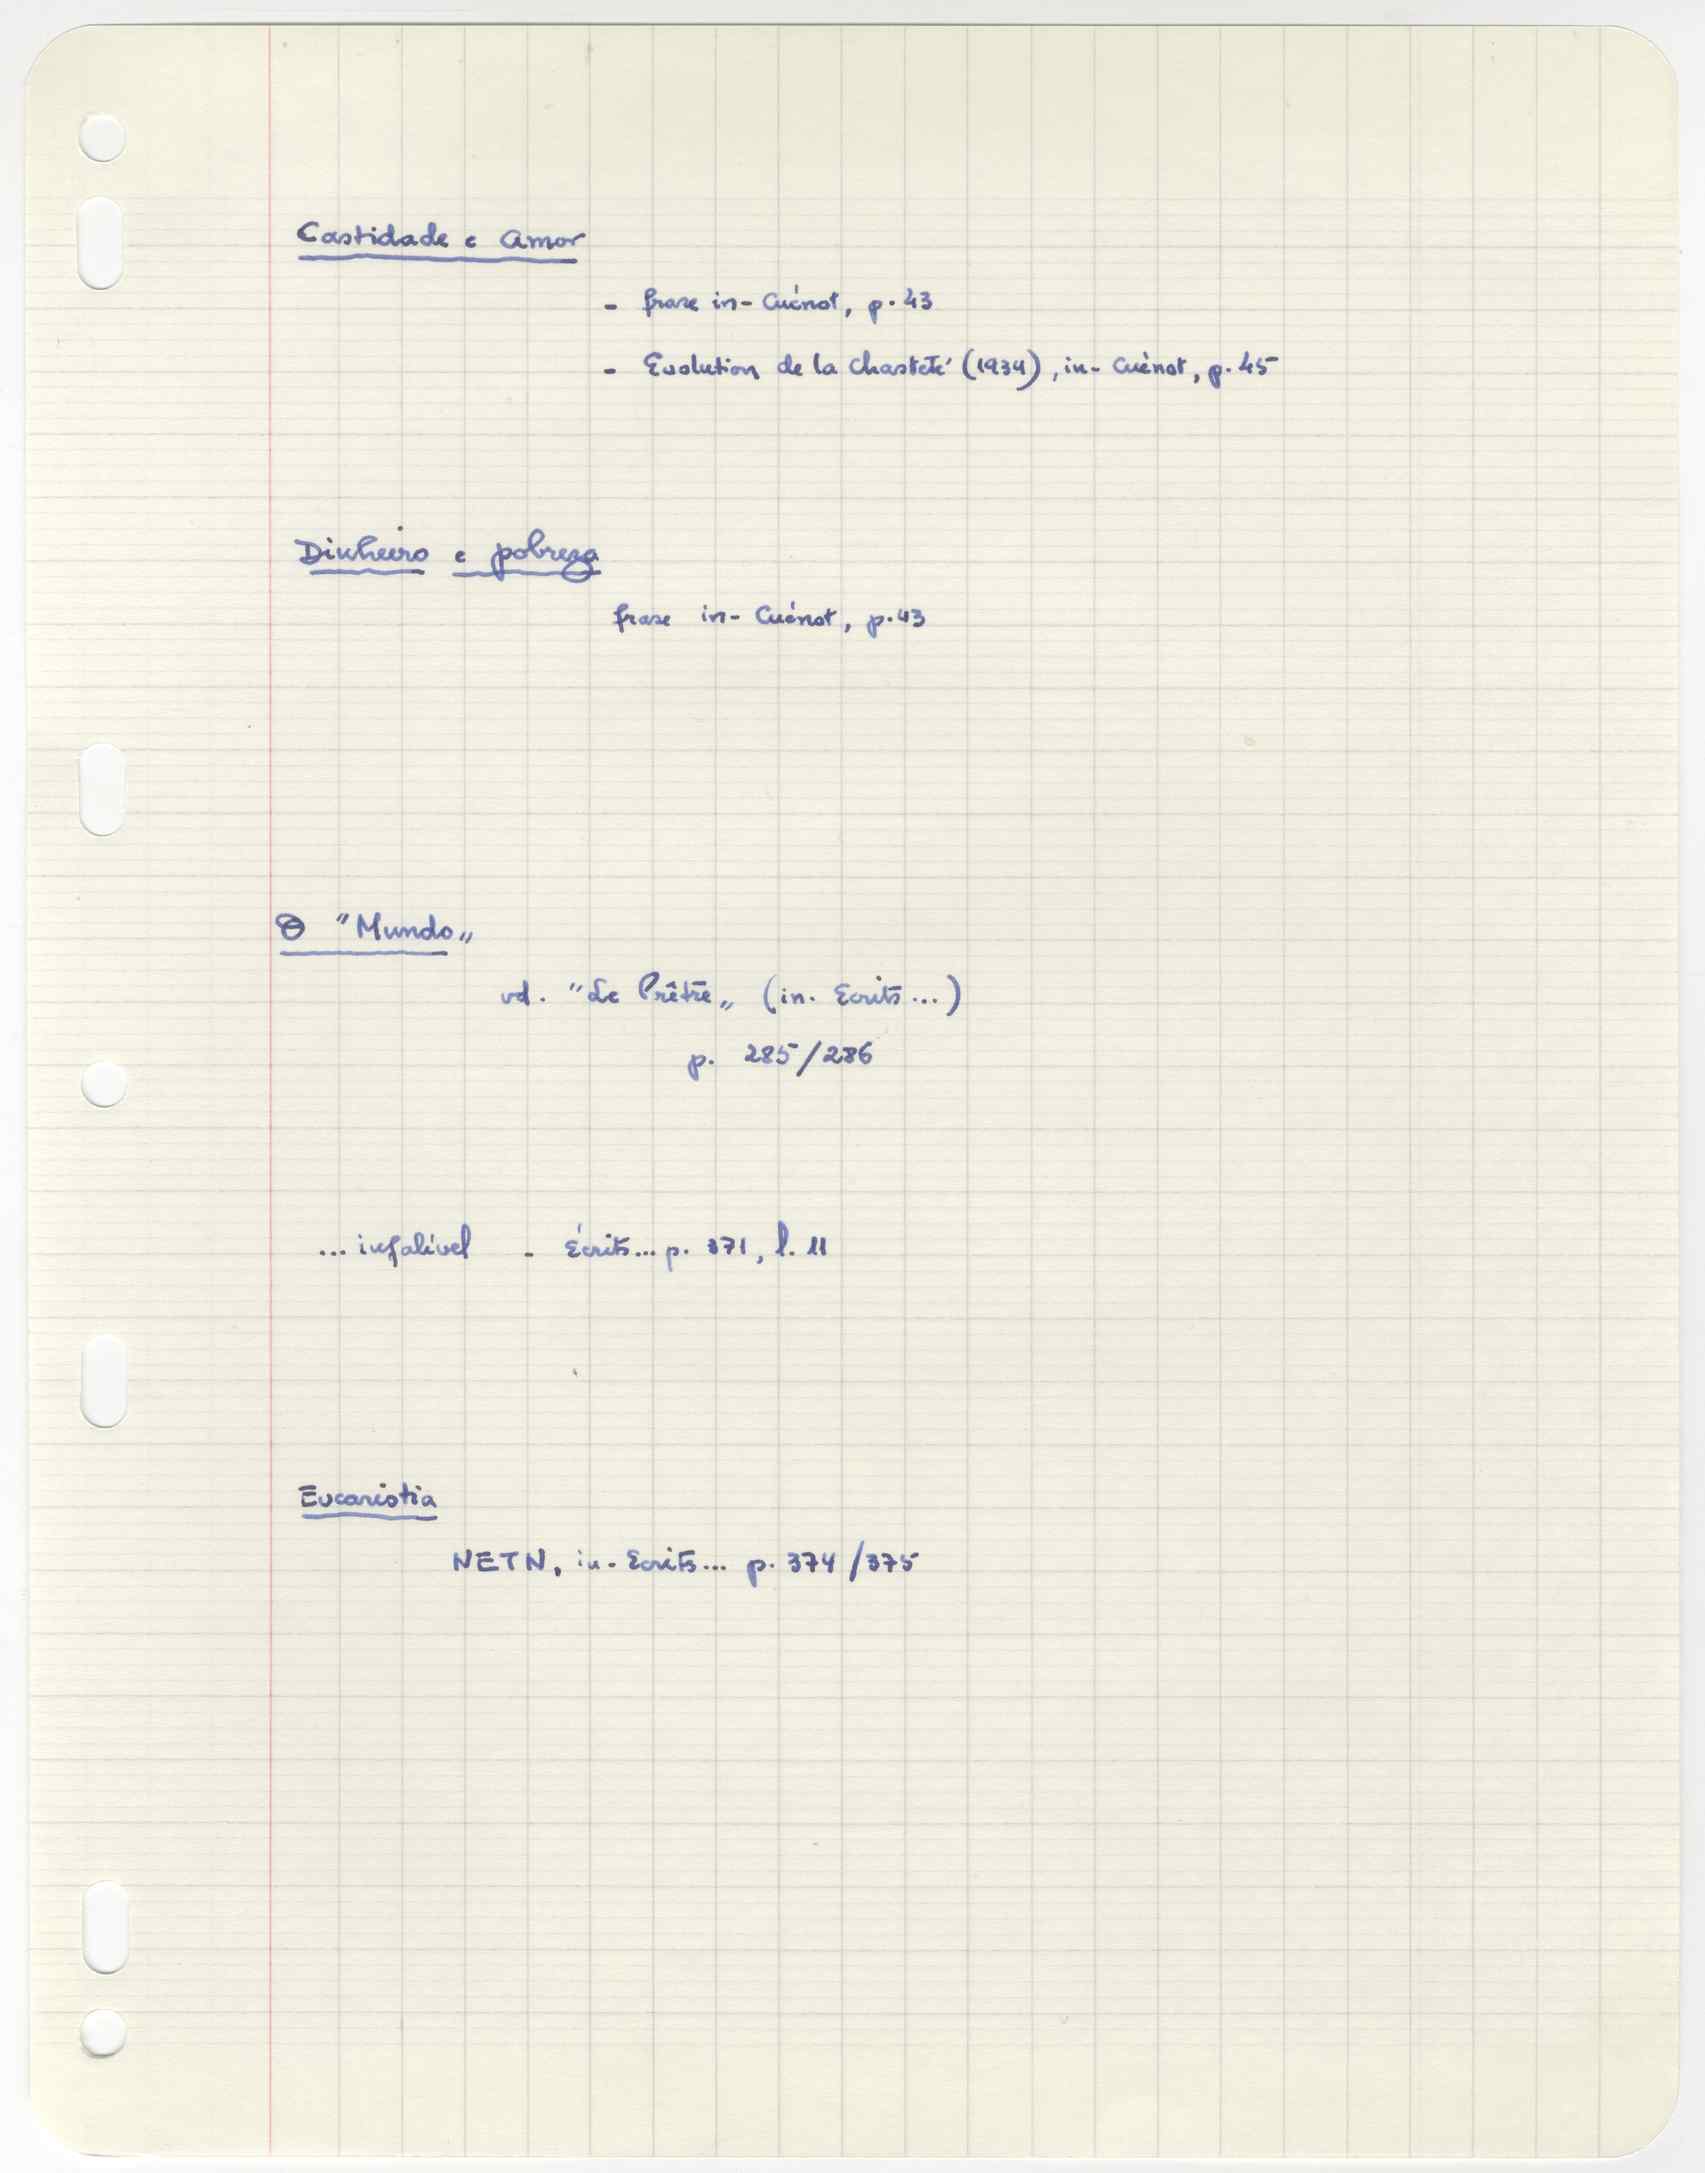 Castidade e Amor
- frase in-Cuénot, p. 43
- Evolution de la Chasteté (1934), in-Cuénot, p. 45
Dinheiro e pobreza
frase in-Cuénot, p. 43
O "Mundo"
vd. "Le Prêtre" (in. Ecrits...)
p. 285/286
... infalível - Écrits... p. 371, l. 11
Eucaristia
NETN, in-Ecrits... p. 374/375